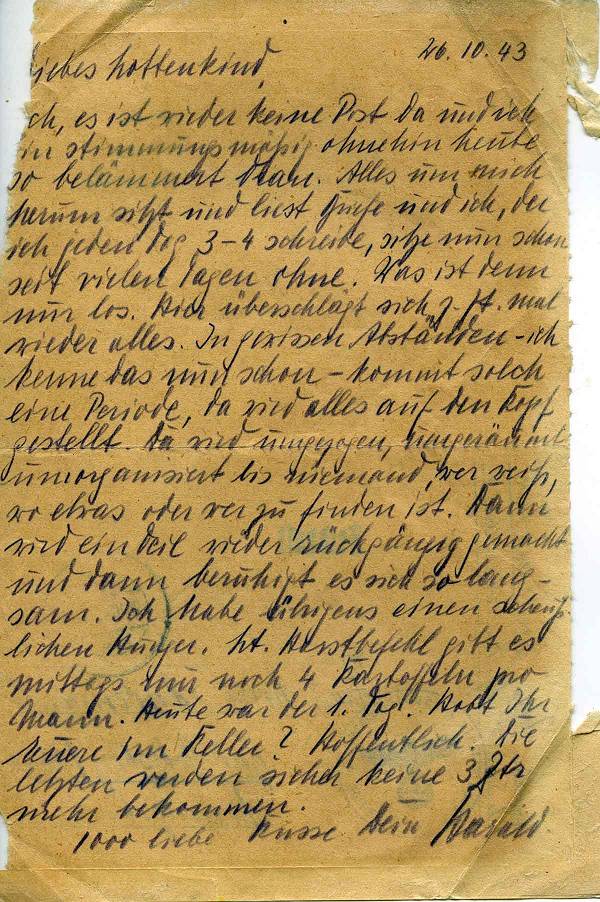 26.10.43
liebes Lottenkind,
ch, es ist wieder keine Post da und ich
in stimmungsmäßig ohnehin heute
so belämmert dran. Alles um mich
herum sitzt und liest Briefe und ich, der
ich jeden Tag 3-4 schreibe, sitze nun schon
seit vielen Tagen ohne. Was ist denn
nur los. Hier überschlägt sich z. Zt. mal
wieder alles. In gewissen Abständen - ich
kenne das nun schon - kommt solch
eine Periode, da wird alles auf den Kopf
gestellt. Da wird umgezogen, umgeräumt
umorganisiert bis niemand, wer weiß,
wo etwas oder wer zu finden ist. Dann
wird ein Teil wieder rückgängig gemacht
und dann beruhigt es sich so lang-
sam. Ich habe übrigens einen scheuß-
lichen Hunger. lt. Horstbefehl gibt es
mittags nur noch 4 Kartoffeln pro
Mann. Heute war der 1. Tag. Habt Ihr
Eure im Keller? Hoffentlich. Die
letzten werden sicher keine 3 Ztr
mehr bekommen.
1000 liebe Küsse Dein Harald.